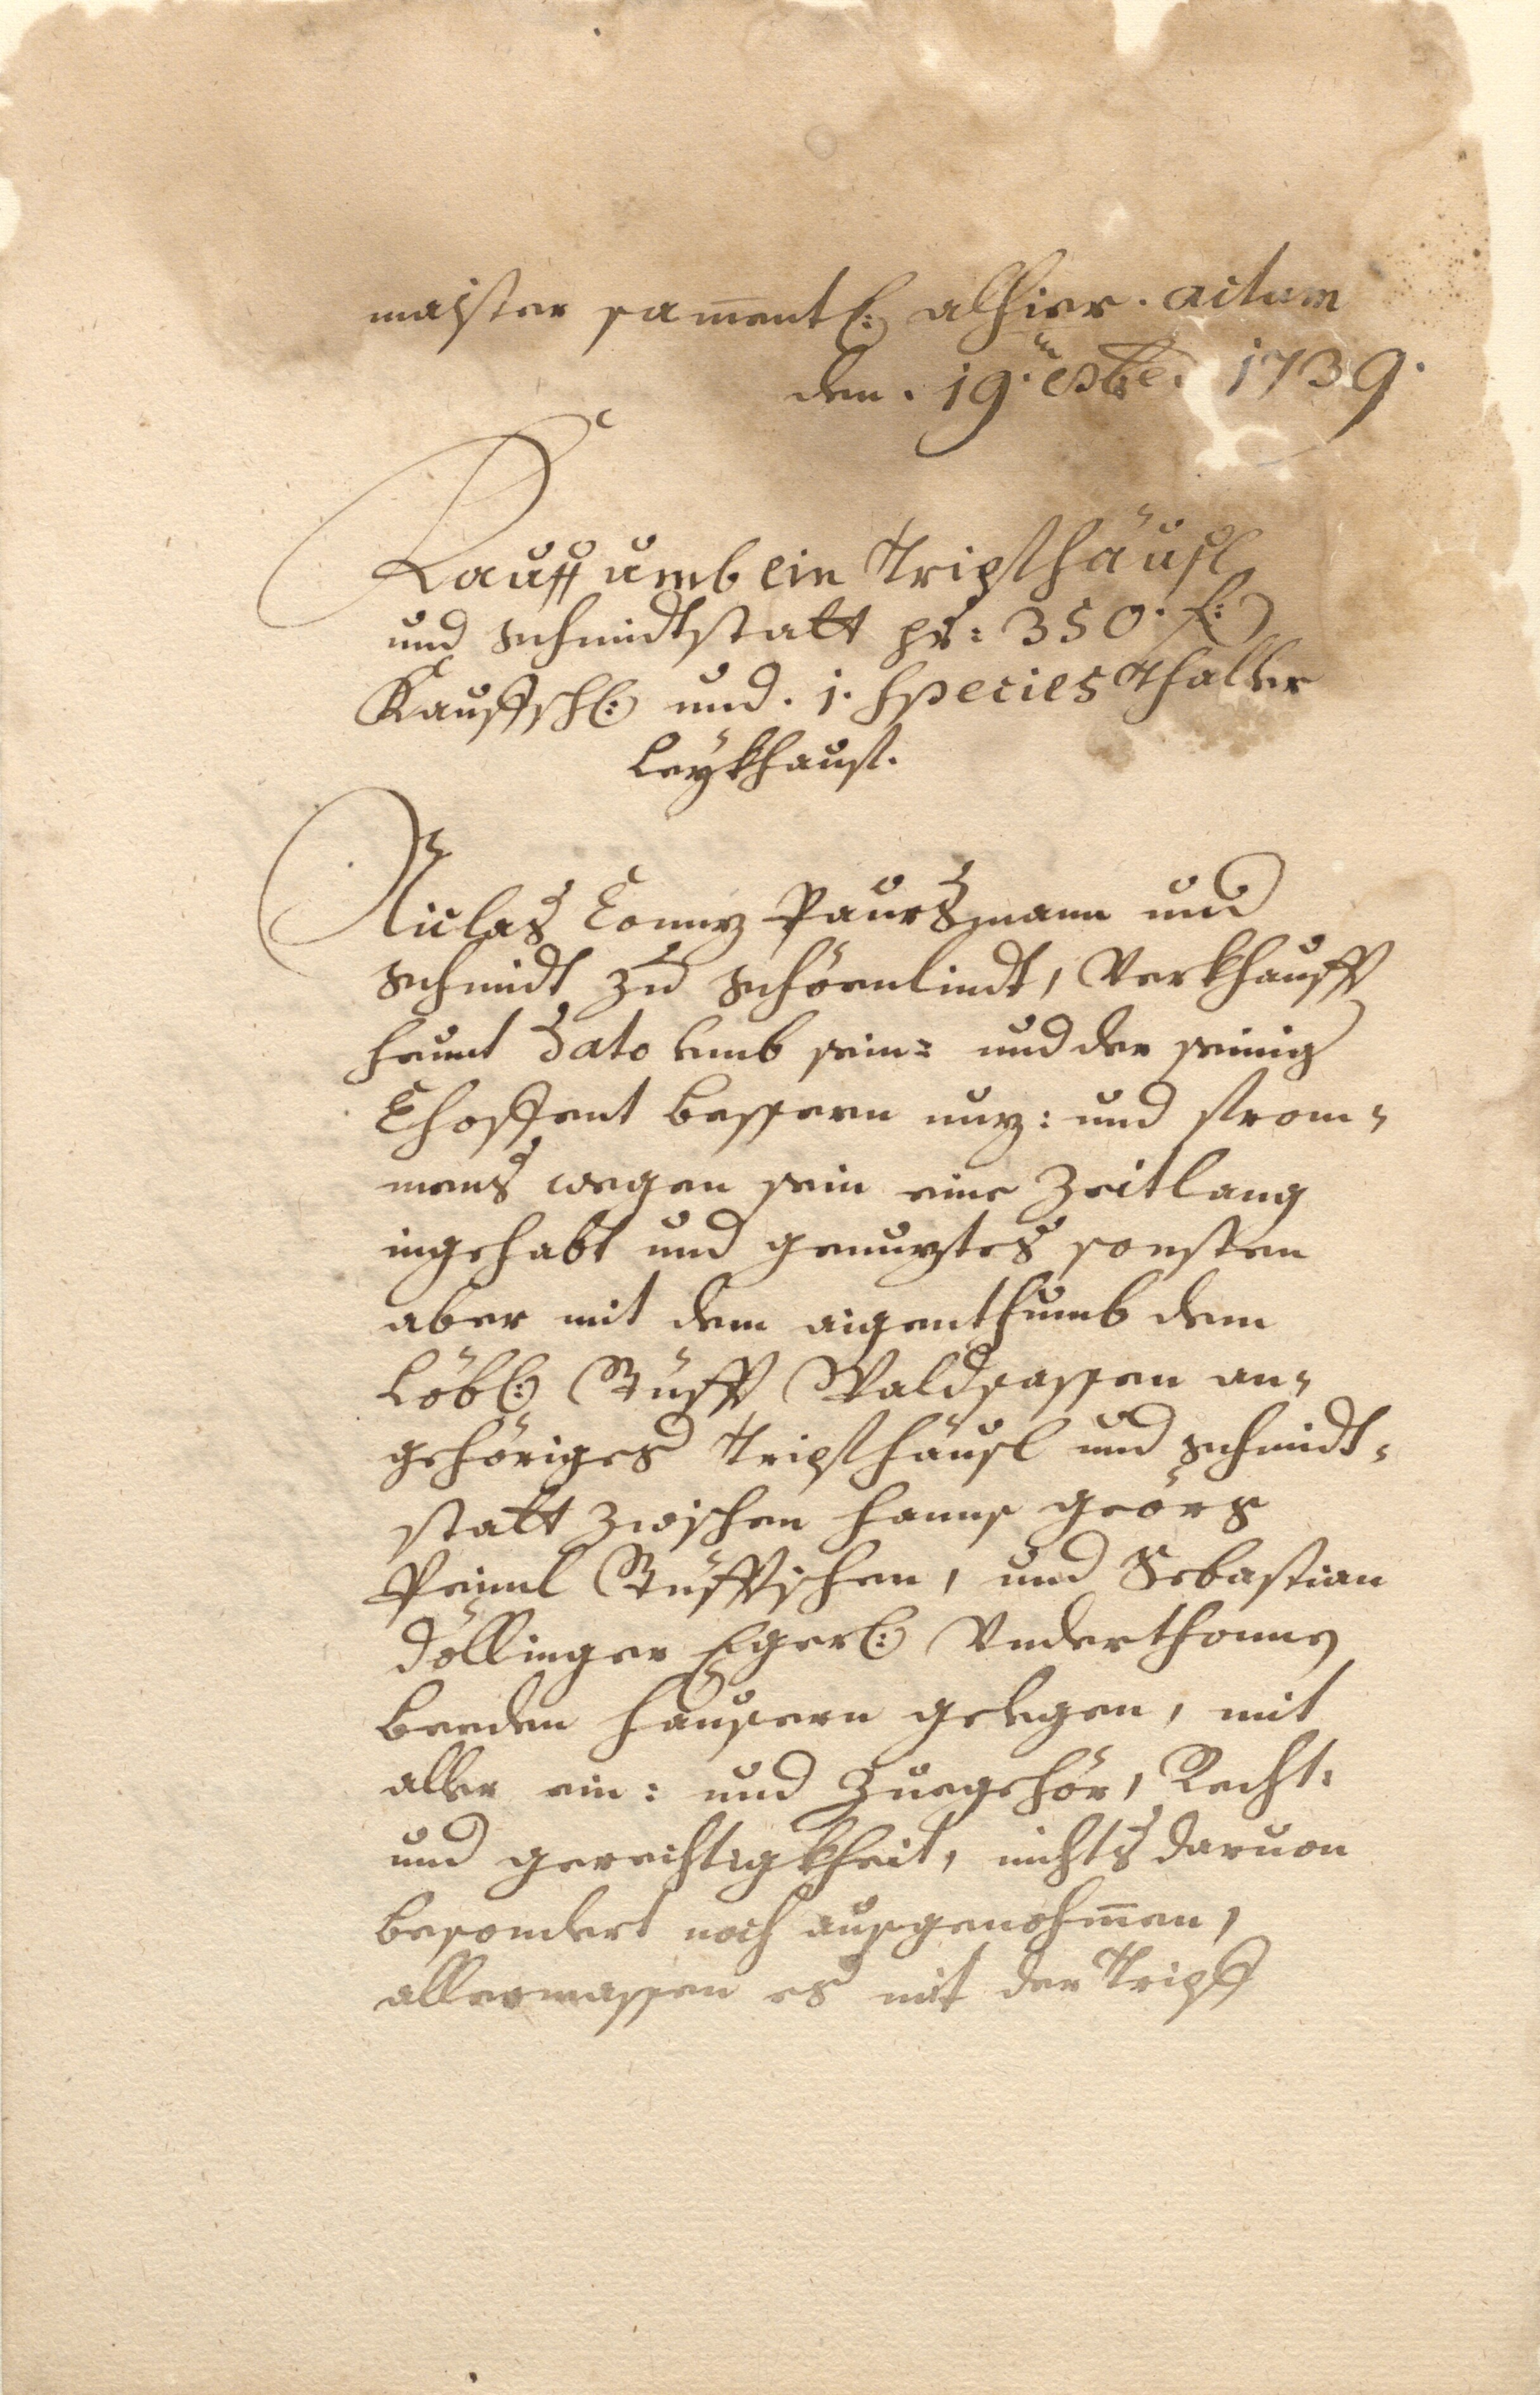 maister samentl: alhier. actum
den. 19.ten 8bre. 1739.
Kauff umb ein Tripfthäusl
und schmidtstatt pr: 350. f:
Kauffschl: und. 1. Species thaller
Leykhauf.
Niclas Paursmann und
schmidt zu schörnlindt, Verkhaufft
heunt Dato umb sein: und der seinig
Verhoffent bessern nuz: und from-
mens wegen sein eine Zeitlang
ingehabt und genuztes sonsten
aber mit dem aigenthumb dem
Löbl: Stüfft Waldsassen an-
gehöriges Tripfthäusl und schmidt-
statt zwischen hanns geörg
Stüfftischen, und Sebastian
Döllinger Egerl: Underthonns
beeden häusern gelegen, mit
aller ein: und Zuegehör, Recht:
und gerechtigkheit, nichts daruon
besondert noch ausgenohmen,
allermassen es mit der Tripfft